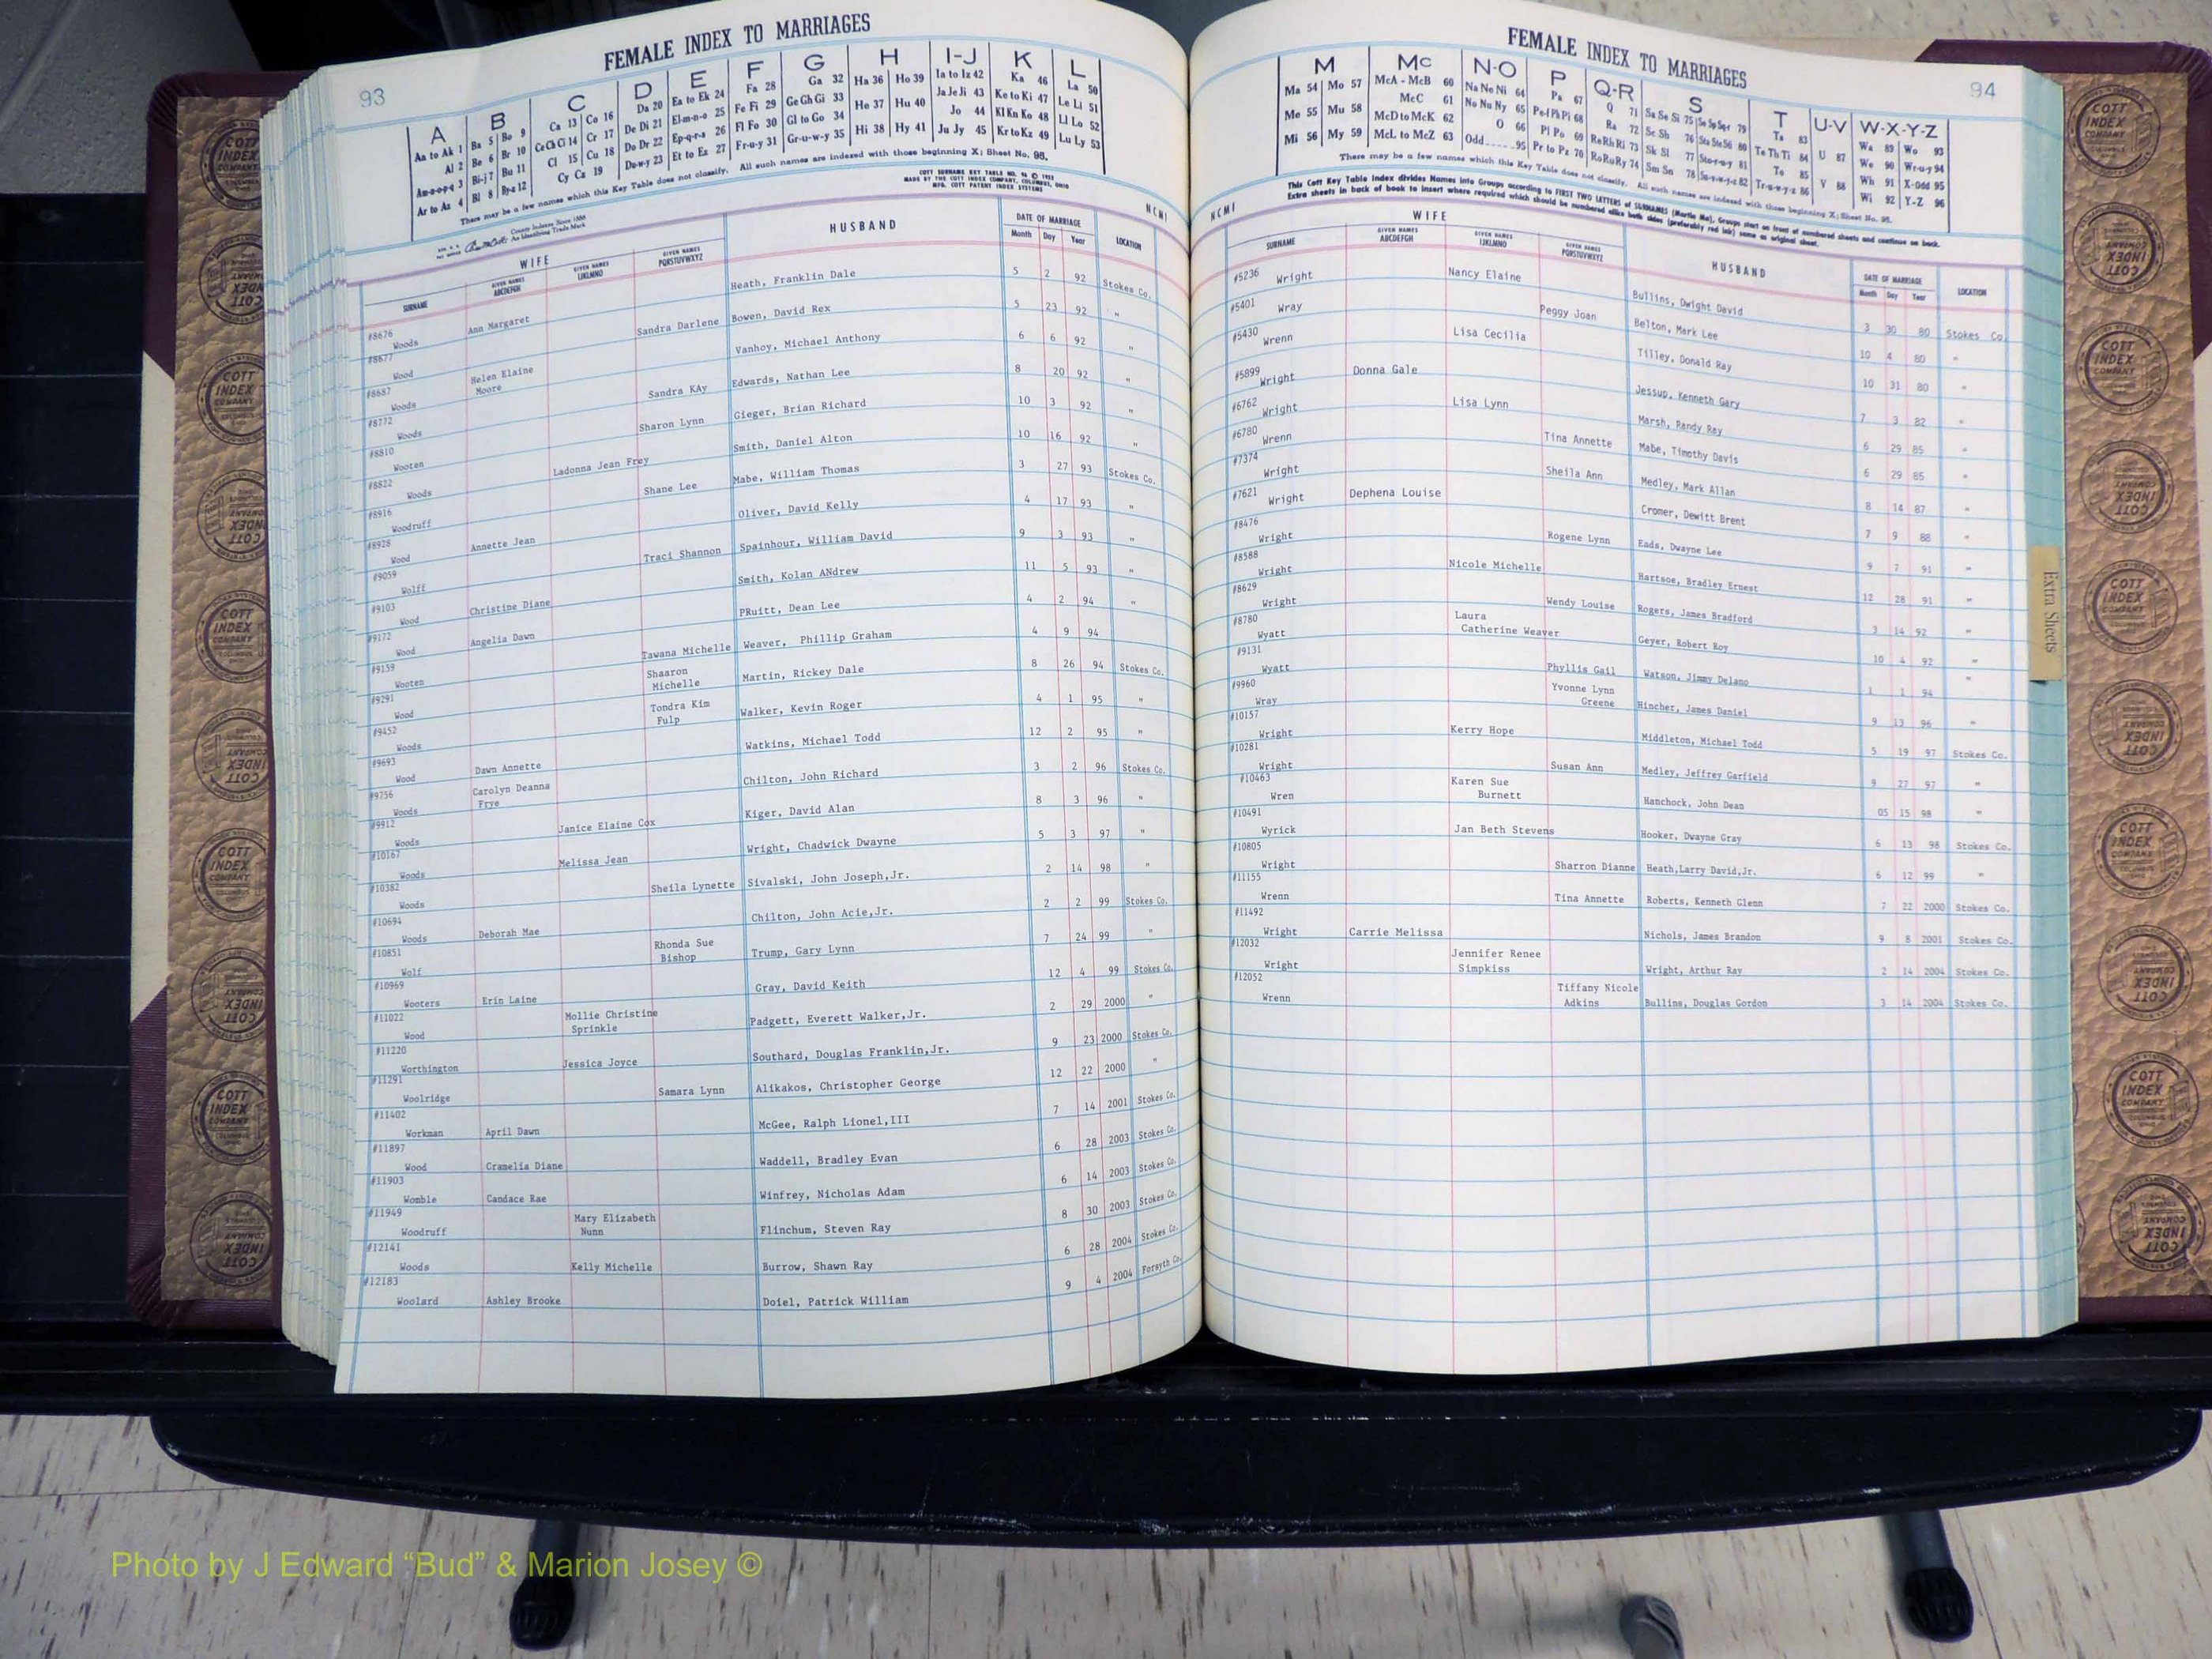 93
FEMALE INDEX TO MARRIAGES
A B C D E F G H I-J K L
Aa to Ak 1 Ba 5 Bo 9 Ca 13 Co 16 Da 20 Ea to Ek 24 Fa 28 Ga 32 Ha 36 Ho 39 Ia to Iz 42 Ka 46 La 50
Al 2 Be 6 Br 10 Ce Ch Ci 14 Cr 17 De Di 21 El-m-n-o 25 Fe Fi 29 Ge Gh Gi 33 He 37 Hu 40 Ja Je Ji 43 Ke to Ki 47 Le Li 51
Am-n-o-p-q 3 Bi-j 7 Bu 11 Cl 15 Cu 18 Do Dr 22 Ep-q-r-s 26 Fl Fo 30 Gl to Go 34 Hi 38 Hy 41 Jo 44 Kl Kn Ko 48 Ll Lo 52
Ar to Az 4 Bl 8 By-z 12 Cy Cz 19 Du-w-y 23 Et to Ez 27 Fr-u-y 31 Gr-u-w-y 35 Ju Jy 45 Kr to Kz 49 Lu Ly 53
There may be a few names which this Key Table does not classify. All such names are indexed with those beginning X; Sheet No. 95.
County Indexes Since 1888
An Identifying Trade Mark
MADE BY THE COTT INDEX COMPANY, COLUMBUS, OHIO
MFG. COTT PATENT INDEX SYSTEMS
NCMI
WIFE HUSBAND DATE OF MARRIAGE LOCATION
SURNAME GIVEN NAMES ABCDEFGH GIVEN NAMES IJKLMNO GIVEN NAMES PQRSTUVWXYZ Month Day Year
#8676 Woods Ann Margaret Heath, Franklin Dale 5 2 92 Stokes Co.
#8677 Wood Sandra Darlene Bowen, David Rex 5 23 92 "
#8687 Woods Helen Elaine Moore Vanhoy, Michael Anthony 6 6 92 "
#8772 Woods Sandra KAy Edwards, Nathan Lee 8 20 92 "
#8810 Wooten Sharon Lynn Gieger, Brian Richard 10 3 92 "
#8822 Woods Ladonna Jean Frey Smith, Daniel Alton 10 16 92 "
#8916 Woodruff Shane Lee Mabe, William Thomas 3 27 93 Stokes Co.
#8928 Wood Annette Jean Oliver, David Kelly 4 17 93 "
#9059 Wolff Traci Shannon Spainhour, William David 9 3 93 "
#9103 Wood Christine Diane Smith, Kolan ANdrew 11 5 93 "
#9172 Wood Angelia Dawn PRuitt, Dean Lee 4 2 94 "
#9159 Wooten Tawana Michelle Weaver, Phillip Graham 4 9 94
#9291 Wood Shaaron Michelle Martin, Rickey Dale 8 26 94 Stokes Co.
#9452 Woods Tondra Kim Fulp Walker, Kevin Roger 4 1 95 "
#9693 Wood Dawn Annette Watkins, Michael Todd 12 2 95 "
#9756 Woods Carolyn Deanna Frye Chilton, John Richard 3 2 96 Stokes Co.
#9912 Woods Janice Elaine Cox Kiger, David Alan 8 3 96 "
#10167 Woods Melissa Jean Wright, Chadwick Dwayne 5 3 97 "
#10382 Woods Sheila Lynette Sivalski, John Joseph,Jr. 2 14 98 "
#10694 Woods Deborah Mae Chilton, John Acie,Jr. 2 2 99 Stokes Co.
#10851 Wolf Rhonda Sue Bishop Trump, Gary Lynn 7 24 99 "
#10969 Wooters Erin Laine Gray, David Keith 12 4 99 Stokes Co.
#11022 Wood Mollie Christine Sprinkle Padgett, Everett Walker,Jr. 2 29 2000 "
#11220 Worthington Jessica Joyce Southard, Douglas Franklin,Jr. 9 23 2000 Stokes Co.
#11291 Woolridge Samara Lynn Alikakos, Christopher George 12 22 2000 "
#11402 Workman April Dawn McGee, Ralph Lionel,III 7 14 2001 Stokes Co.
#11897 Wood Cramelia Diane Waddell, Bradley Evan 6 28 2003 Stokes Co.
#11903 Womble Candace Rae Winfrey, Nicholas Adam 6 14 2003 Stokes Co.
#11949 Woodruff Mary Elizabeth Nunn Flinchum, Steven Ray 8 30 2003 Stokes Co.
#12141 Woods Kelly Michelle Burrow, Shawn Ray 6 28 2004 Stokes Co.
#12183 Woolard Ashley Brooke Doiel, Patrick William 9 4 2004 Forsyth Co.
FEMALE INDEX TO MARRIAGES
94
M Mc N-O P Q-R S T U-V W-X-Y-Z
Ma 54 Mo 57 McA - McB 60 Na Ne Ni 64 Pa 67 Q 71 Sa Se Si 75 Ta 83 U 87 Wa 89 Wo 93
Me 55 Mu 58 McC 61 No Nu Ny 65 Pe-f Ph Pi 68 Ra 72 Sc Sh 76 Te Th Ti 84 V 88 We 90 Wr-u-y 94
Mi 56 My 59 McD to McK 62 O 66 Pl Po 69 Re Rh Ri 73 Sk Sl 77 To 85 Wh 91 X-Odd 95
McL to McZ 63 Odd 95 Pr to Pz 70 Ro Ru Ry 74 Sm Sn 78 Tr-u-w-y-z 86 Wi 92 Y-Z 96
There may be a few names which this Key Table does not classify. All such names are indexed with those beginning X; Sheet No. 95.
This Cott Key Table Index divides Names into Groups according to FIRST TWO LETTERS of SURNAMES (Martin Ma), Groups start on front of numbered sheets and continue on back.
Extra sheets in back of book to insert where required which should be numbered alike both sides (preferably red ink) same as original sheet.
NCMI
WIFE HUSBAND DATE OF MARRIAGE LOCATION
SURNAME GIVEN NAMES ABCDEFGH GIVEN NAMES IJKLMNO GIVEN NAMES PQRSTUVWXYZ Month Day Year
#5236 Wright Nancy Elaine Bullins, Dwight David 3 30 80 Stokes Co.
#5401 Wray Peggy Joan Belton, Mark Lee 10 4 80 "
#5430 Wrenn Lisa Cecilia Tilley, Donald Ray 10 31 80 "
#5899 Wright Donna Gale Jessup, Kenneth Gary 7 3 82 "
#6762 Wright Lisa Lynn Marsh, Randy Ray 6 29 85 "
#6780 Wrenn Tina Annette Mabe, Timothy Davis 6 29 85 "
#7374 Wright Sheila Ann Medley, Mark Allan 8 14 87 "
#7621 Wright Dephena Louise Cromer, Dewitt Brent 7 9 88 "
#8476 Wright Rogene Lynn Eads, Dwayne Lee 9 7 91 "
#8588 Wright Nicole Michelle Hartsoe, Bradley Ernest 12 28 91 "
#8629 Wright Wendy Louise Rogers, James Bradford 3 14 92 "
#8780 Wyatt Laura Catherine Weaver Geyer, Robert Roy 10 4 92 "
#9131 Wyatt Phyllis Gail Watson, Jimmy Delano 1 1 94 "
#9960 Wray Yvonne Lynn Greene Hincher, James Daniel 9 13 96 "
#10157 Wright Kerry Hope Middleton, Michael Todd 5 19 97 Stokes Co.
#10281 Wright Susan Ann Medley, Jeffrey Garfield 9 27 97 "
#10463 Wren Karen Sue Burnett Hanchock, John Dean 05 15 98 "
#10491 Wyrick Jan Beth Stevens Hooker, Dwayne Gray 6 13 98 Stokes Co.
#10805 Wright Sharron Dianne Heath,Larry David,Jr. 6 12 99 "
#11155 Wrenn Tina Annette Roberts, Kenneth Glenn 7 22 2000 Stokes Co.
#11492 Wright Carrie Melissa Nichols, James Brandon 9 8 2001 Stokes Co.
#12032 Wright Jennifer Renee Simpkiss Wright, Arthur Ray 2 14 2004 Stokes Co.
#12052 Wrenn Tiffany Nicole Adkins Bullins, Douglas Gordon 3 14 2004 Stokes Co.
Extra Sheets
COTT INDEX COMPANY
Photo by J Edward “Bud” & Marion Josey ©